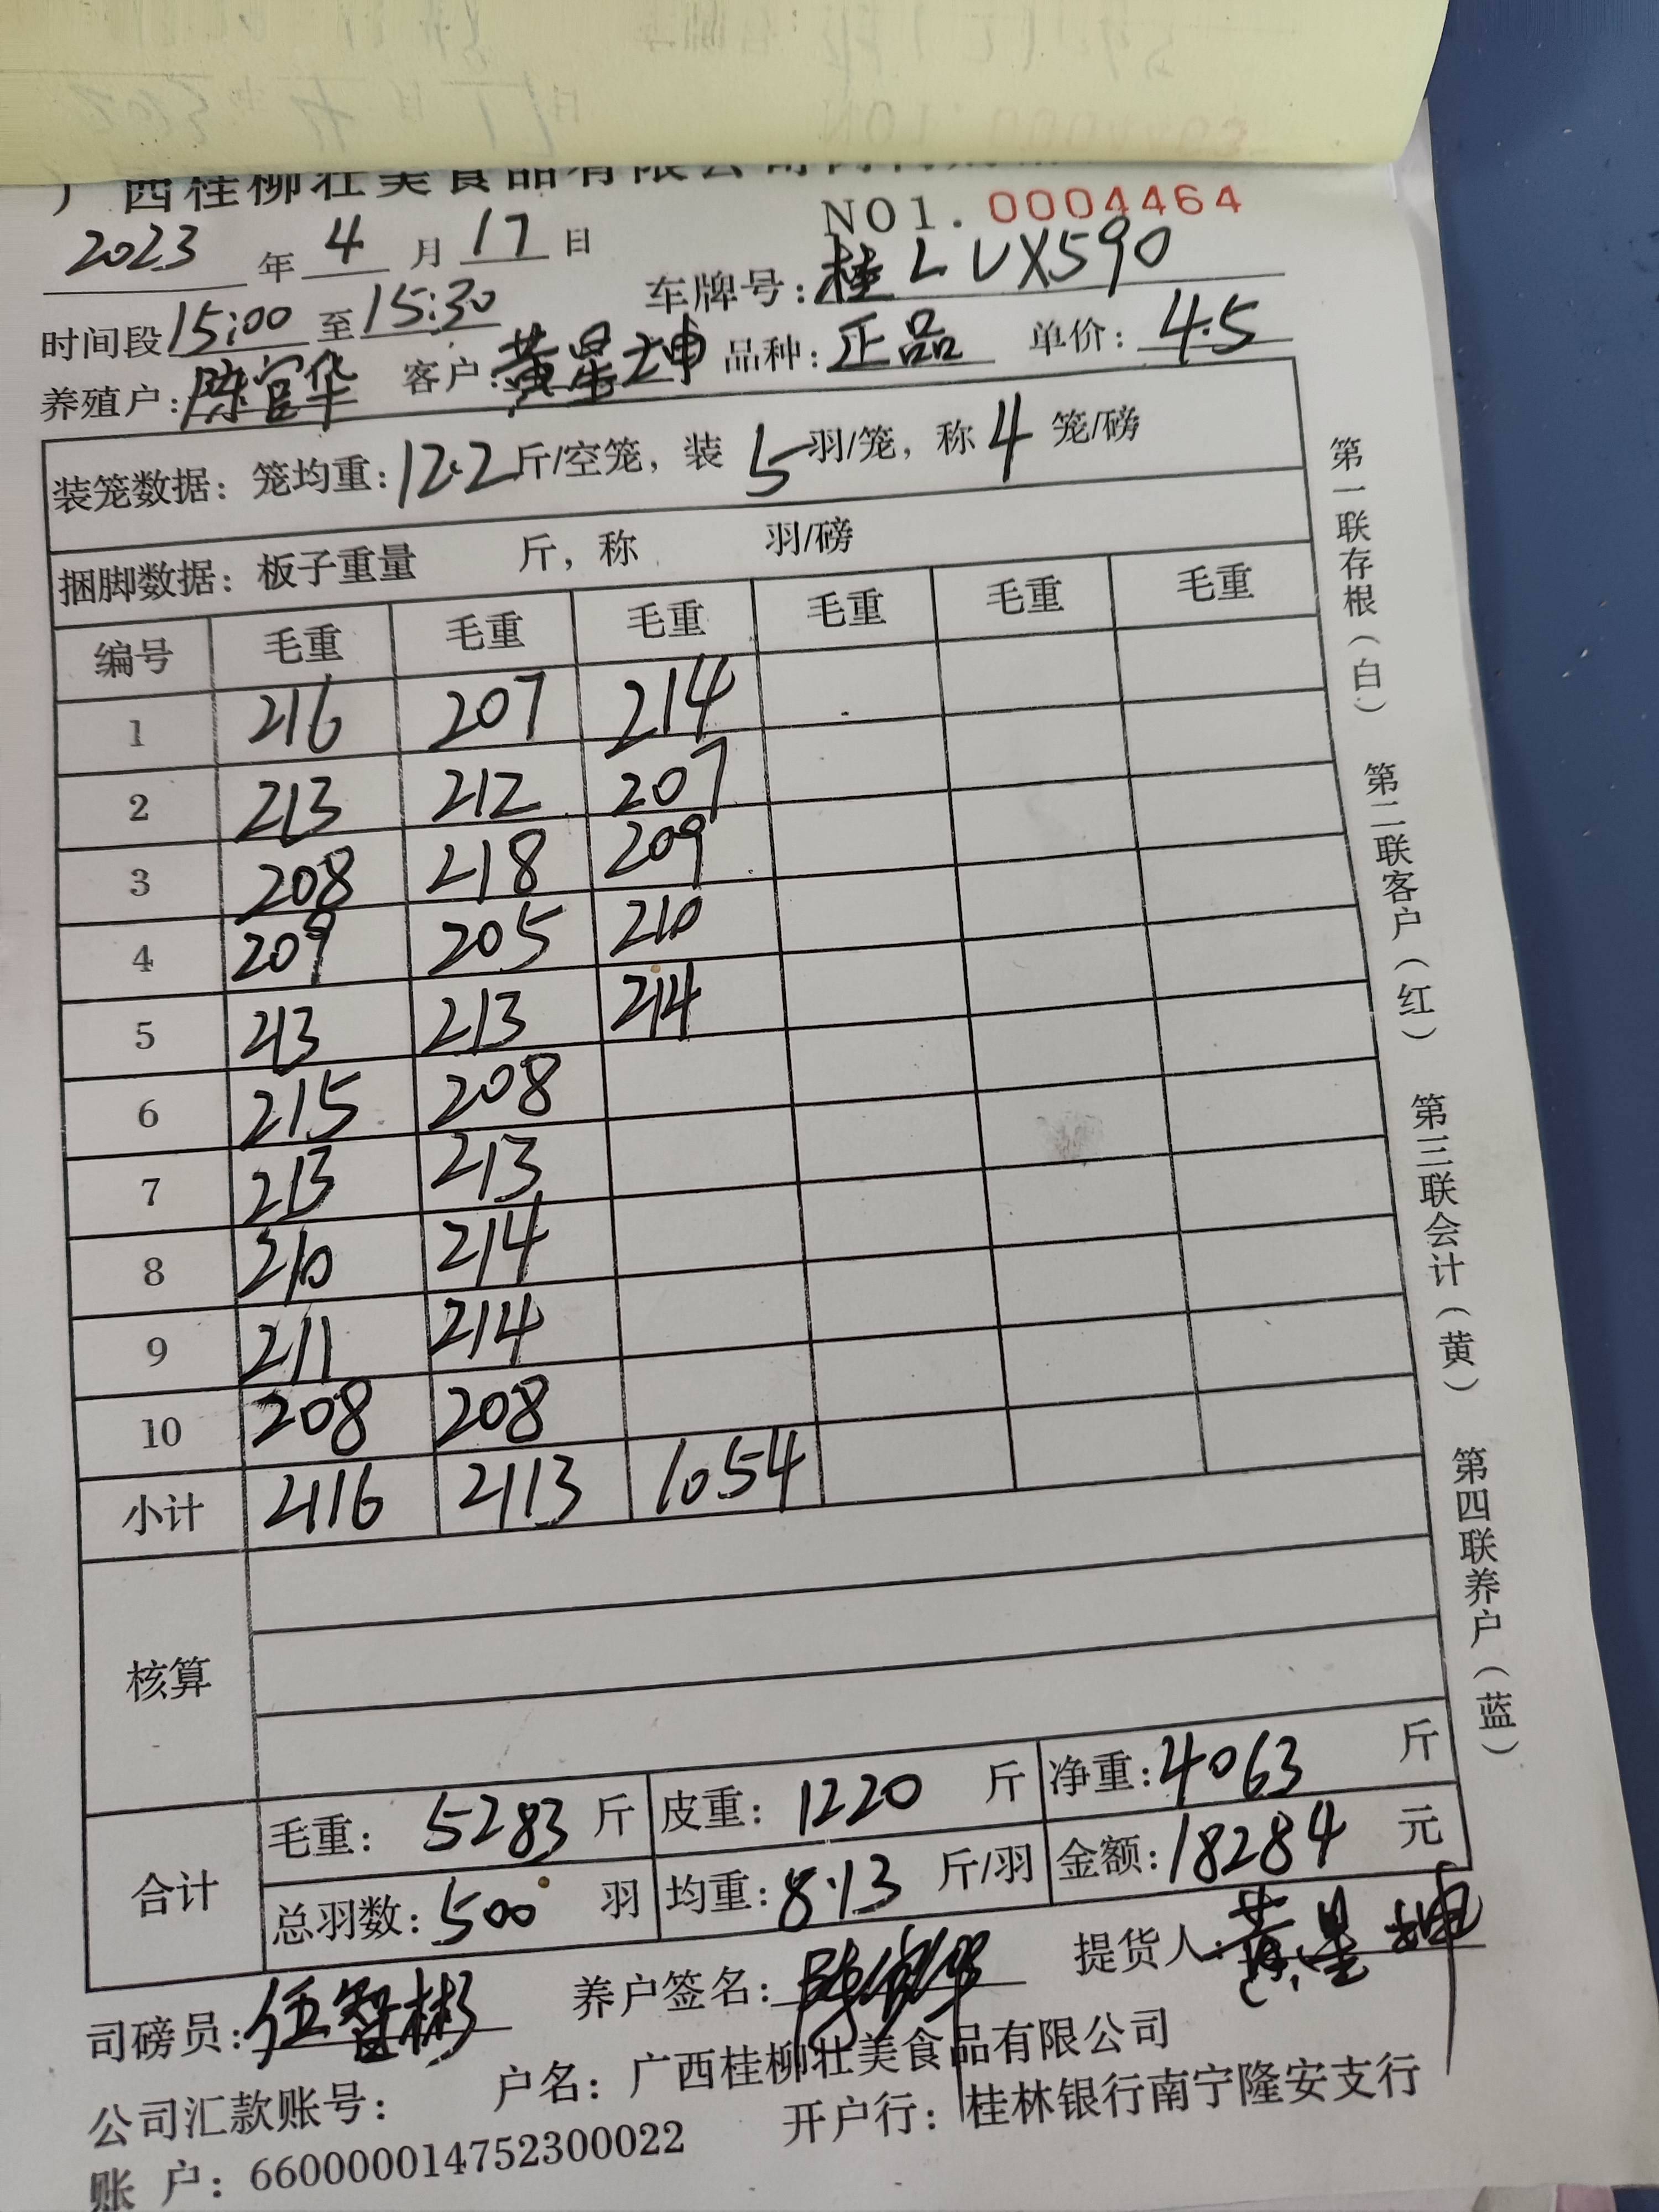 广西桂柳壮美食品有限公司
NO1. 0004464
2023 年 4 月 17 日
车牌号: 桂LUX590
时间段 15:00 至 15:30
养殖户: 陈官华 客户: 黄星坤 品种: 正品 单价: 4.5
装笼数据: 笼均重: 12.2 斤/空笼, 装 5 羽/笼, 称 4 笼/磅
捆脚数据: 板子重量 斤, 称 羽/磅
编号 毛重 毛重 毛重 毛重 毛重 毛重
1 216 207 214
2 213 212 207
3 208 218 209
4 209 205 210
5 213 213 214
6 215 208
7 213 213
8 210 214
9 211 214
10 208 208
小计 2116 2113 1054
核算
合计
毛重: 5283 斤 皮重: 1220 斤 净重: 4063 斤
总羽数: 500 羽 均重: 8.13 斤/羽 金额: 18284 元
司磅员: 伍智彬 养户签名: 陈官华 提货人: 黄星坤
公司汇款账号: 户名: 广西桂柳壮美食品有限公司
账 户: 660000014752300022 开户行: 桂林银行南宁隆安支行
第一联存根(白) 第二联客户(红) 第三联会计(黄) 第四联养户(蓝)